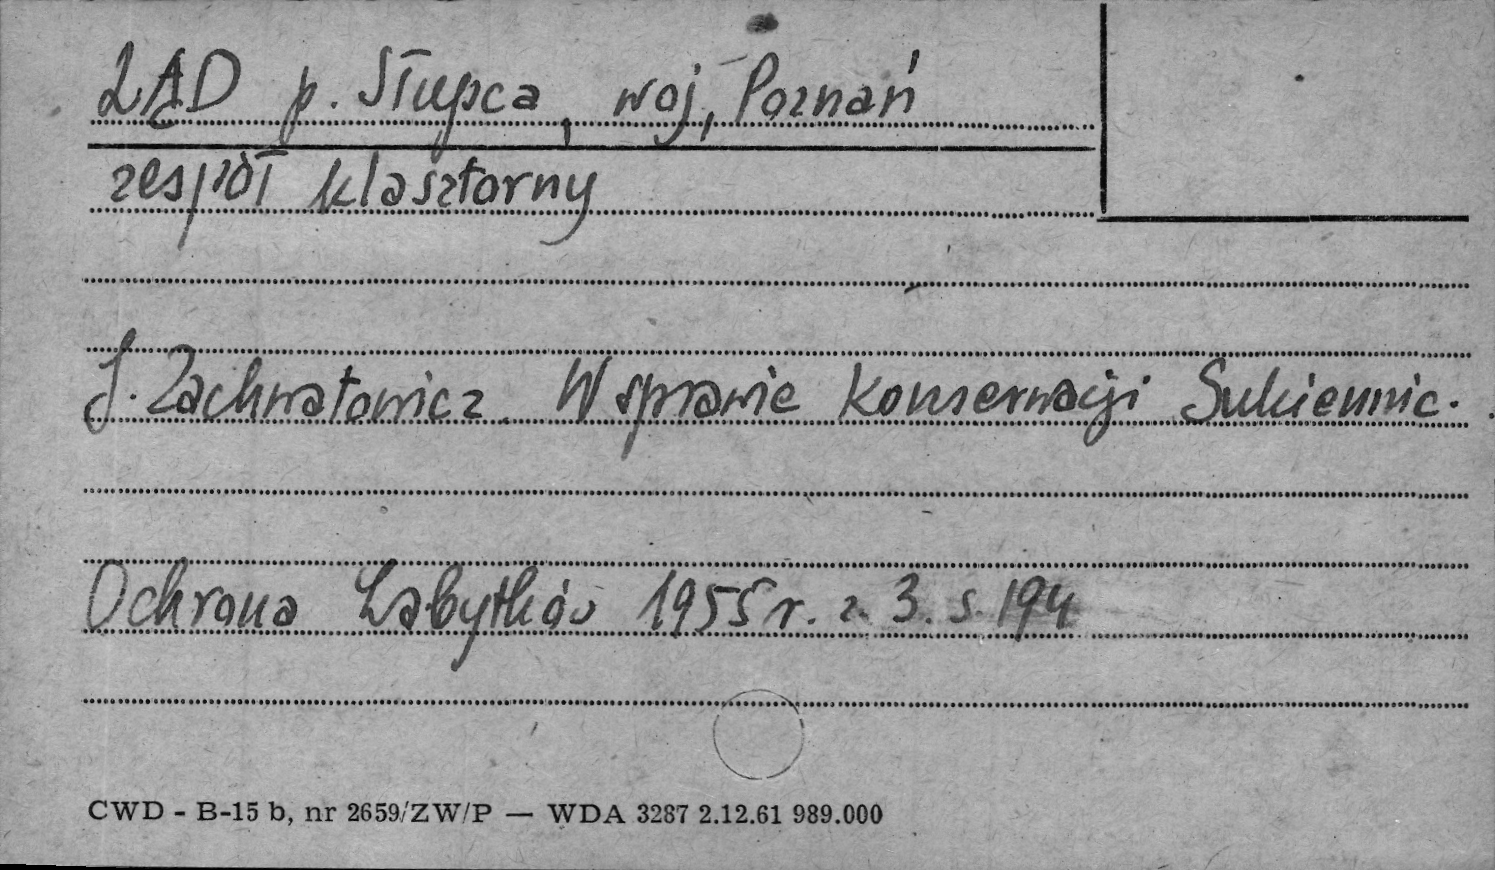 LĄD p. Słupca, woj, Poznań
zespół klasztorny
J. Zachwatowicz. W sprawie konserwacji Sukiennic.
Ochrona Zabytków 1955 r. z. 3. s. 194
CWD - B-15 b, nr 2659/ZW/P — WDA 3287 2.12.61 989.000